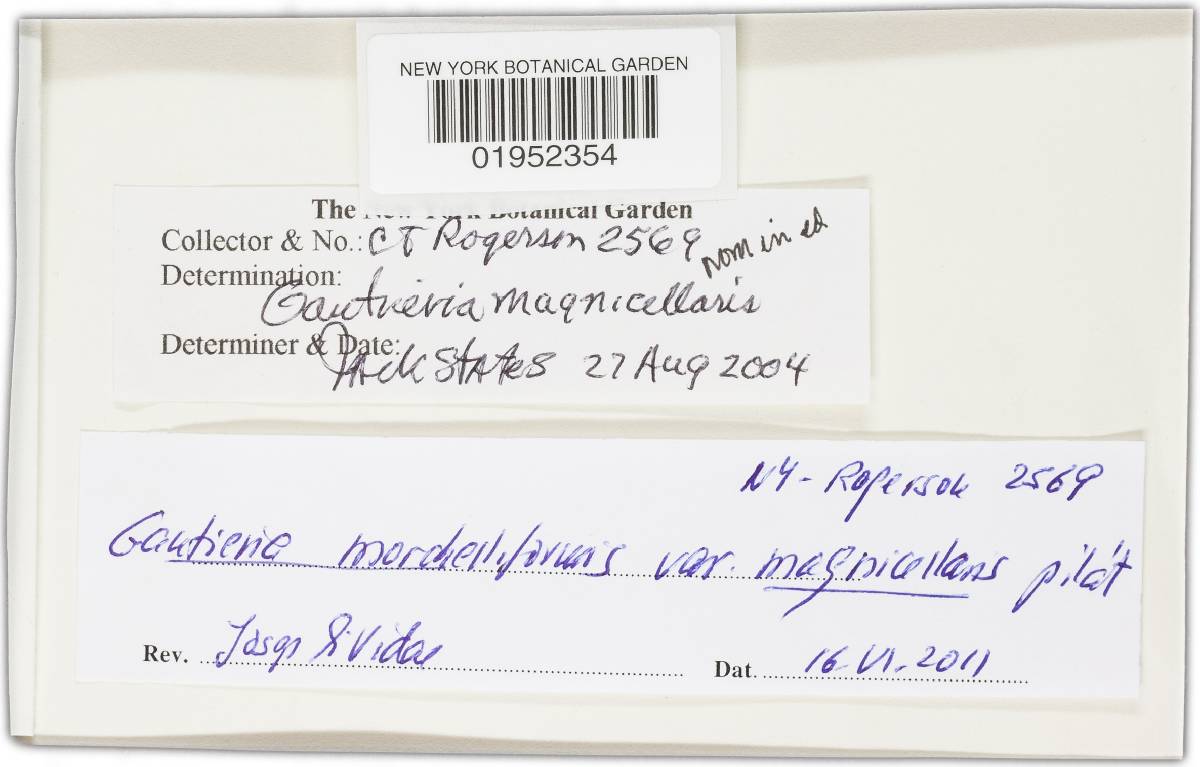 NEW YORK BOTANICAL GARDEN
01952354
The New York Botanical Garden
Collector & No.: CT Rogerson 2569
nom in ed
Determination:
Gautieria magnicellaris
Determiner & Date:
Jack States 27 Aug 2004
NY- Rogerson 2569
Gautieria morchelliformis var. magnicellaris pilát
Rev. Vidal
Dat. 16.VI.2011